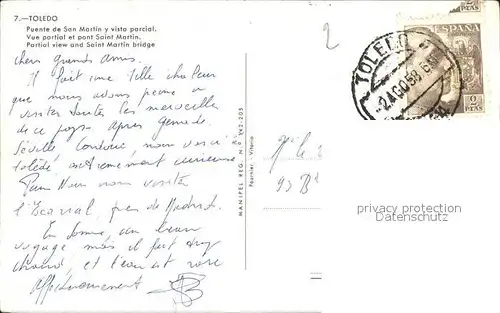 7.—TOLEDO
Puente de San Martín y vista parcial.
Vue partial et pont Saint Martin.
Partial view and Saint Martin bridge
chers grands amis.
Il fait une telle chaleur
que nous avons peine a
visiter toutes les merveilles
de ce pays. Après
Séville Cordoue, nous voici à
tolède extrêmement curieuse
nous visité
l'Escorial, près de Madrid.
En somme un beau
voyage mais il fait trop
chaud, et l'eau est rare
Affectueusement
MANIPEL REG. N.º 242-205
Fournier - Vitoria
2
TOLEDO
2 AGO 58
ESPAÑA
PTAS
2
PTAS
93 B
privacy protection
Datenschutz